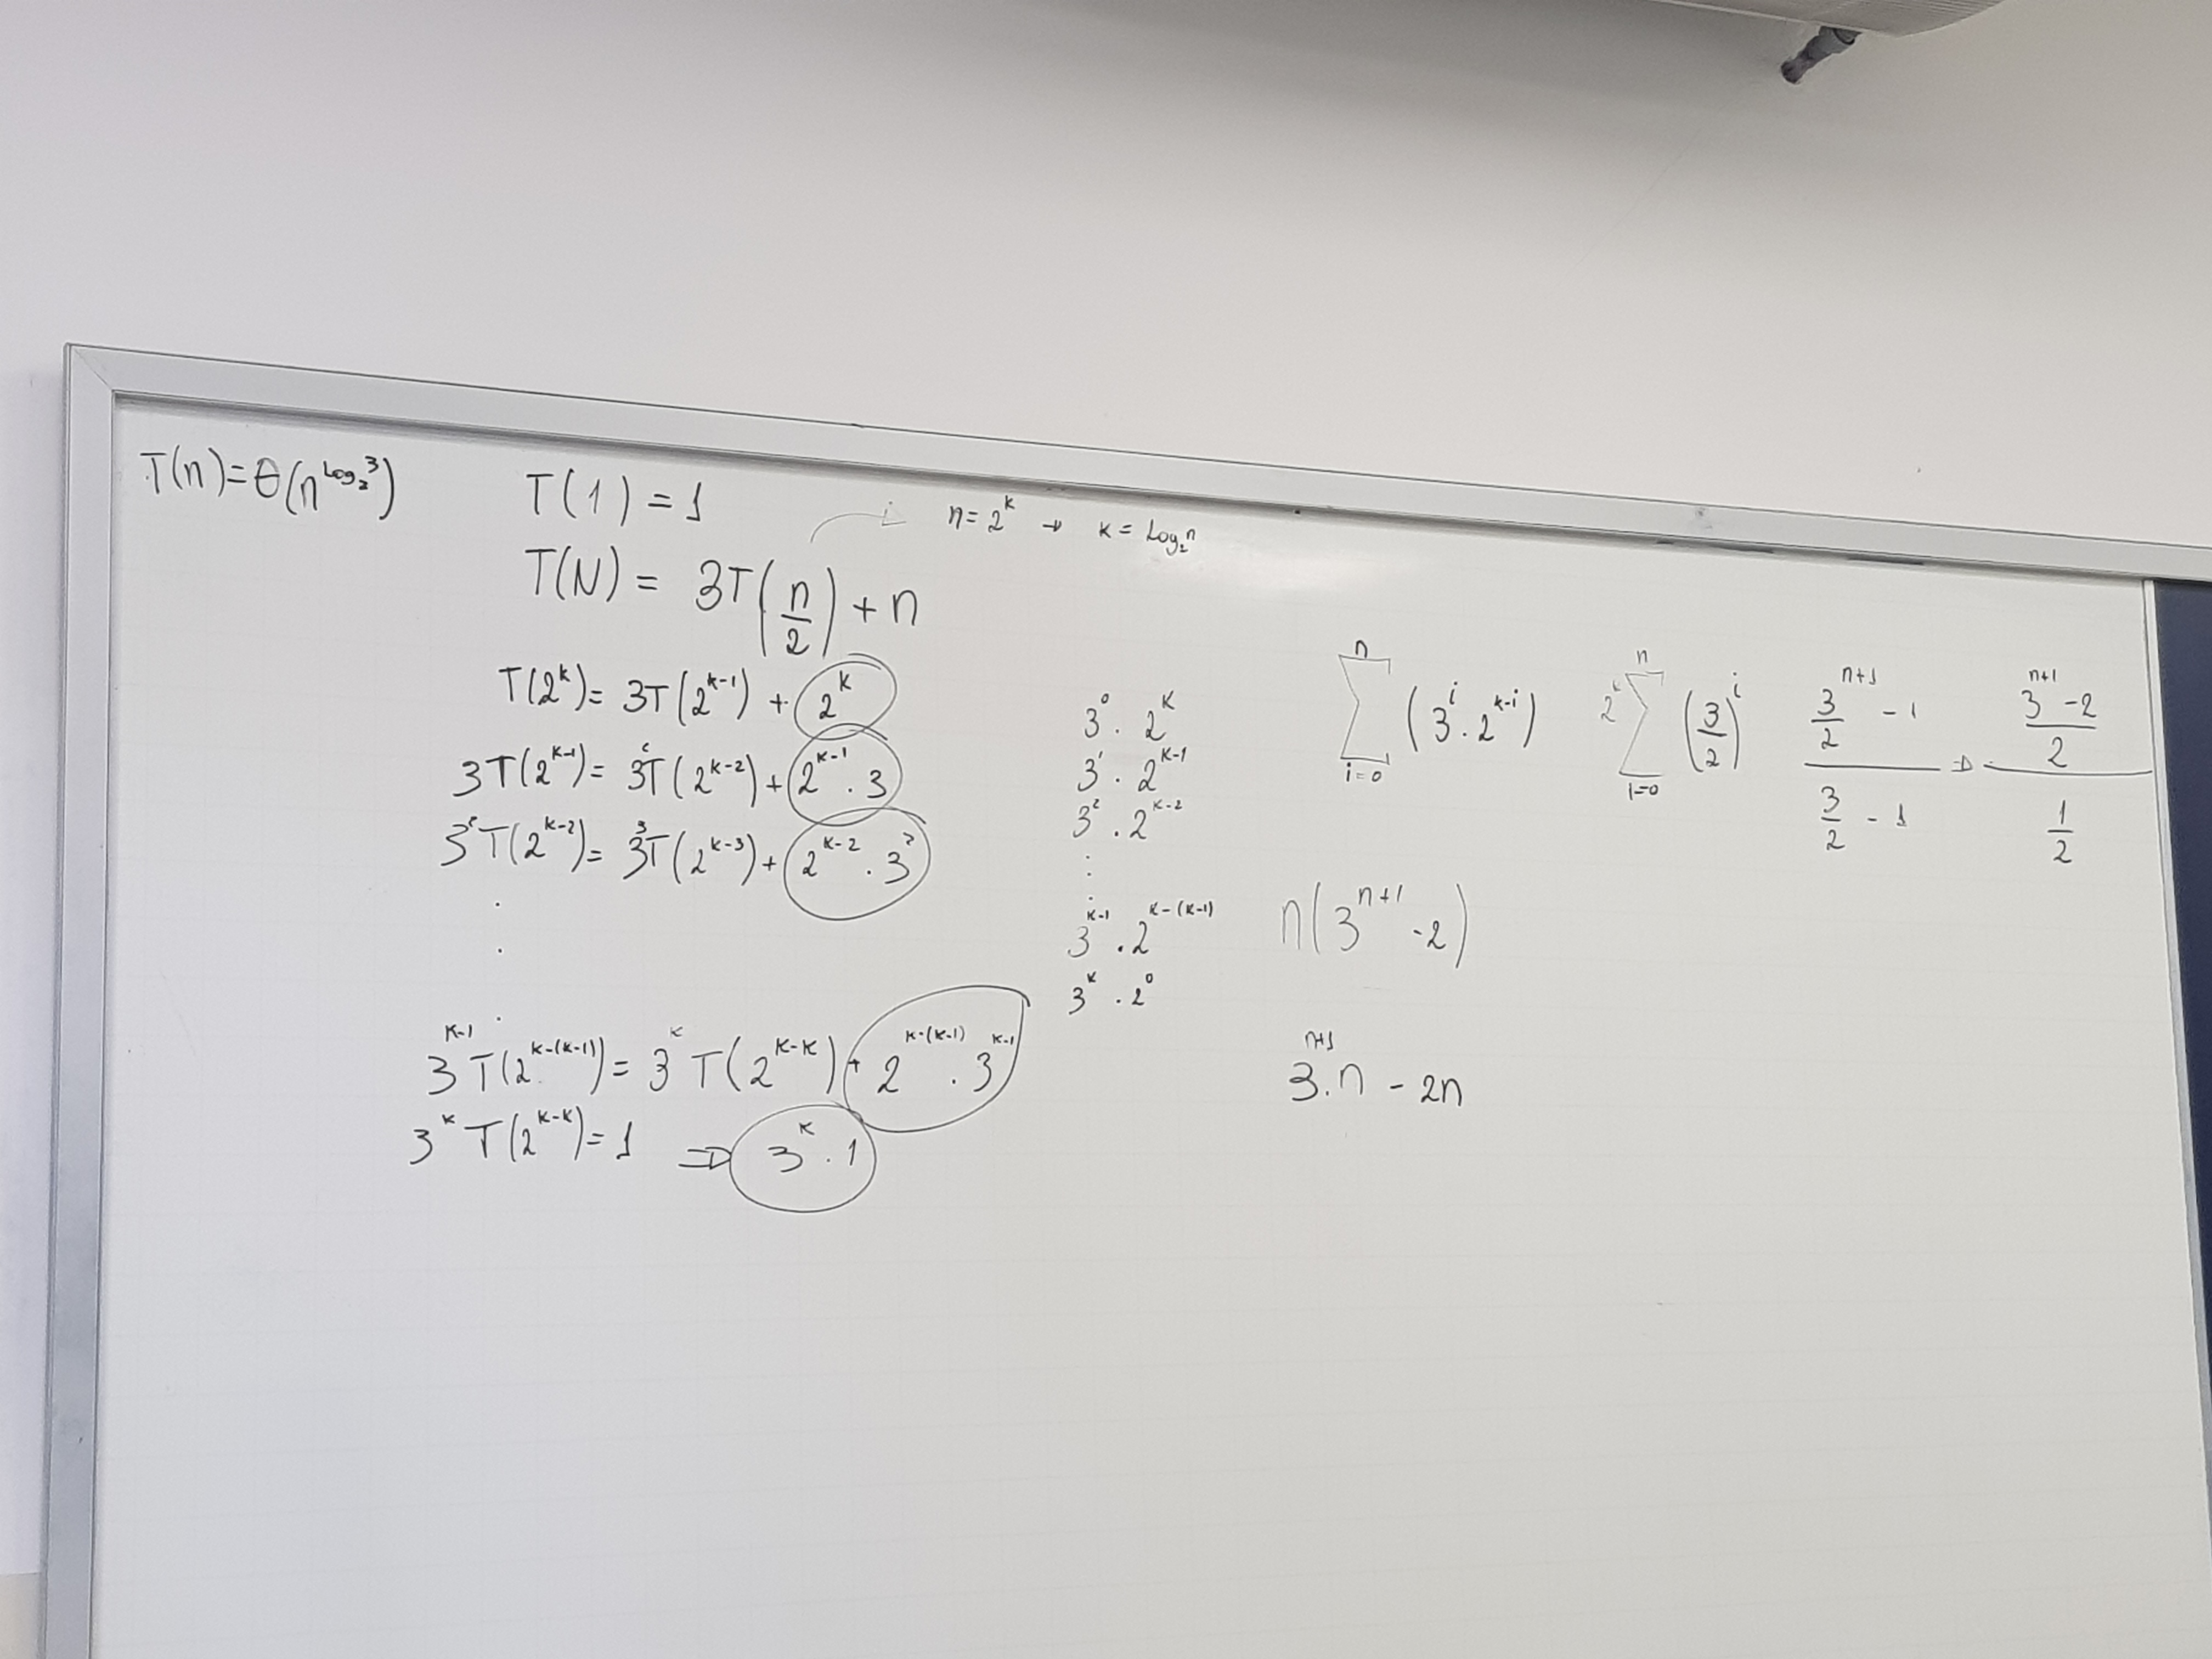 T(n)=Θ(n^log₂3)
T(1)=1
n=2^k → k=Log₂n
T(N)= 3T(n/2)+n
T(2^k)= 3T(2^k-1) + 2^k
3T(2^k-1)= 3²T(2^k-2)+2^k-1 . 3
3²T(2^k-2)= 3³T(2^k-3)+2^k-2 . 3²
.
.
.
3^k-1 T(2^k-(k-1))= 3^k T(2^k-k)+2^k-(k-1) . 3^k-1
3^k T(2^k-k)=1 ⇒ 3^k . 1
3^0 . 2^k
3^1 . 2^k-1
3^2 . 2^k-2
:
:
3^k-1 . 2^k-(k-1)
3^k . 2^0
n Σ i=0 (3^i . 2^k-i)
2^k n Σ i=0 (3/2)^i
(3^n+1/2 - 1)/(3/2 - 1) ⇒ ((3^n+1 - 2)/2)/(1/2)
n(3^n+1 - 2)
3^n+1 . n - 2n